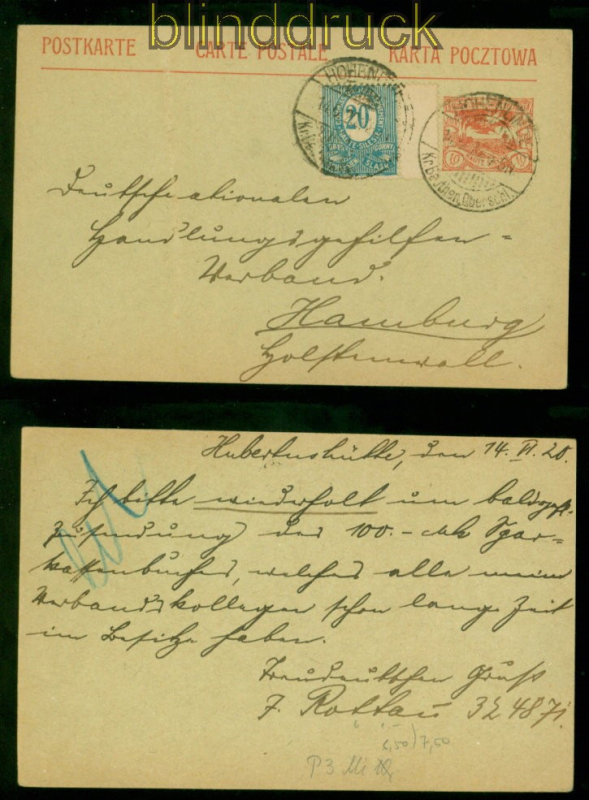 blinddruck
POSTKARTE CARTE POSTALE KARTA POCZTOWA
HOHENLINDE
20
10 10
Kr. Beuthen, Oberschl.
Deutschnationalen
Handlungsgehilfen-
Verband.
Hamburg
Holstenwall.
Hubertushütte, den 14. VI. 20.
Ich bitte wiederholt um baldgefl.
Zusendung des 100.- Mk Spar-
kassenbuches, welches alle mein
Verbandskollegen schon lange Zeit
im Besitze haben.
Treudeutschen Gruss
F. Rottau 324871.
6,50/7,50
P3 Mi